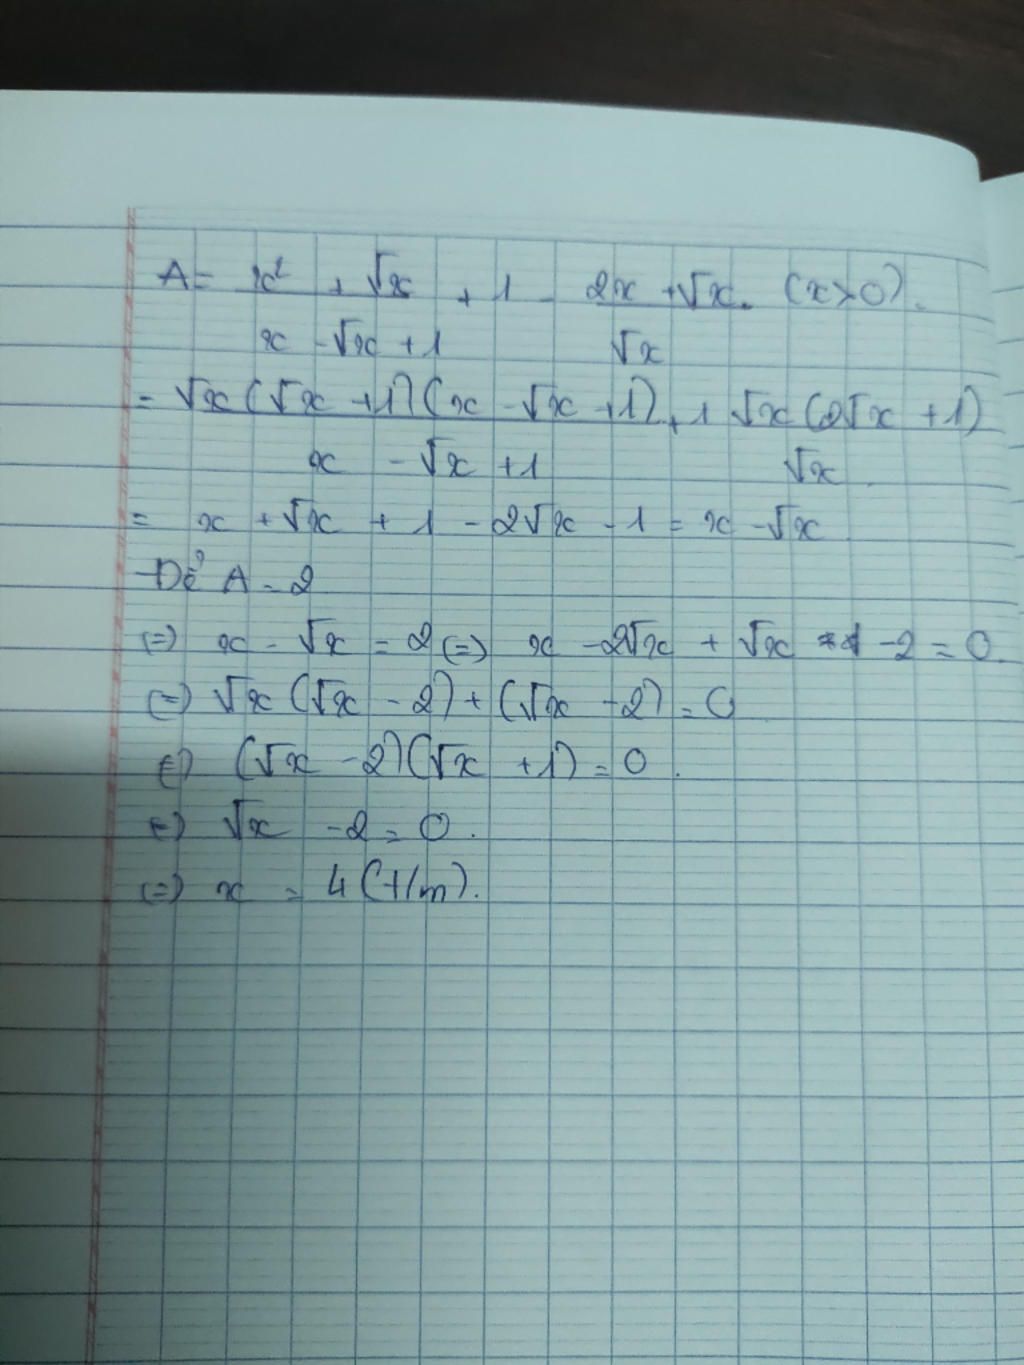 A = x² + √x + 1 - 2x + √x. (x>0).
x - √x + 1 √x
= √x (√x + 1) (x - √x + 1) + 1 √x (2√x + 1)
x - √x + 1 √x
= x + √x + 1 - 2√x - 1 = x - √x
Để A = 2
(=) x - √x = 2 (=) x - 2√x + √x - 2 = 0.
(=) √x (√x - 2) + (√x - 2) = 0
(=) (√x - 2) (√x + 1) = 0.
(=) √x - 2 = 0.
(=) x = 4 (t/m).